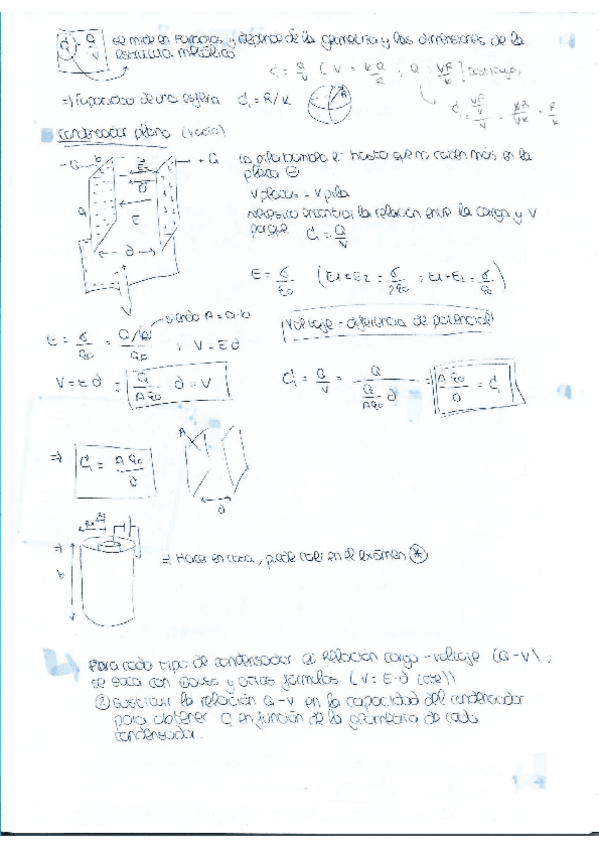 C = Q/V se mide en Faradios y depende de la geometría y las dimensiones de la
estructura metálica
C = Q/V ( V = KQ/R ; Q = VR/K )
=) Capacidad de una esfera C = R/K
C = (VR/K)/V = VR/VK = R/K
Condensador plano (vacío)
-Q +Q
E
d
a
La pila bombea e- hasta que no caben más en la
placa ⊖
V placas = V pila
Necesito encontrar la relación entre la carga y V
porque C = Q/V
E = σ/ε0 (E1=E2 = σ/2ε0 ; E1+E2 = σ/ε0)
siendo A = a·b
E = σ/ε0 = ; V = Ed
Voltaje = diferencia de potencial
V = E d = Q/Aε0 d = V
C = Q/V = Q/(Q/Aε0 d) = Aε0/d = C
⇒ C = Aε0/d
A
d
b
=) Hacer en casa, puede caer en el exámen *
Para cada tipo de condensador relación carga-voltaje (Q-V),
se saca con Gauss y otras fórmulas (V = E·d (cte))
② Sustituir la relación Q-V en la capacidad del condensador
para obtener C en función de la geometría de cada
condensador.